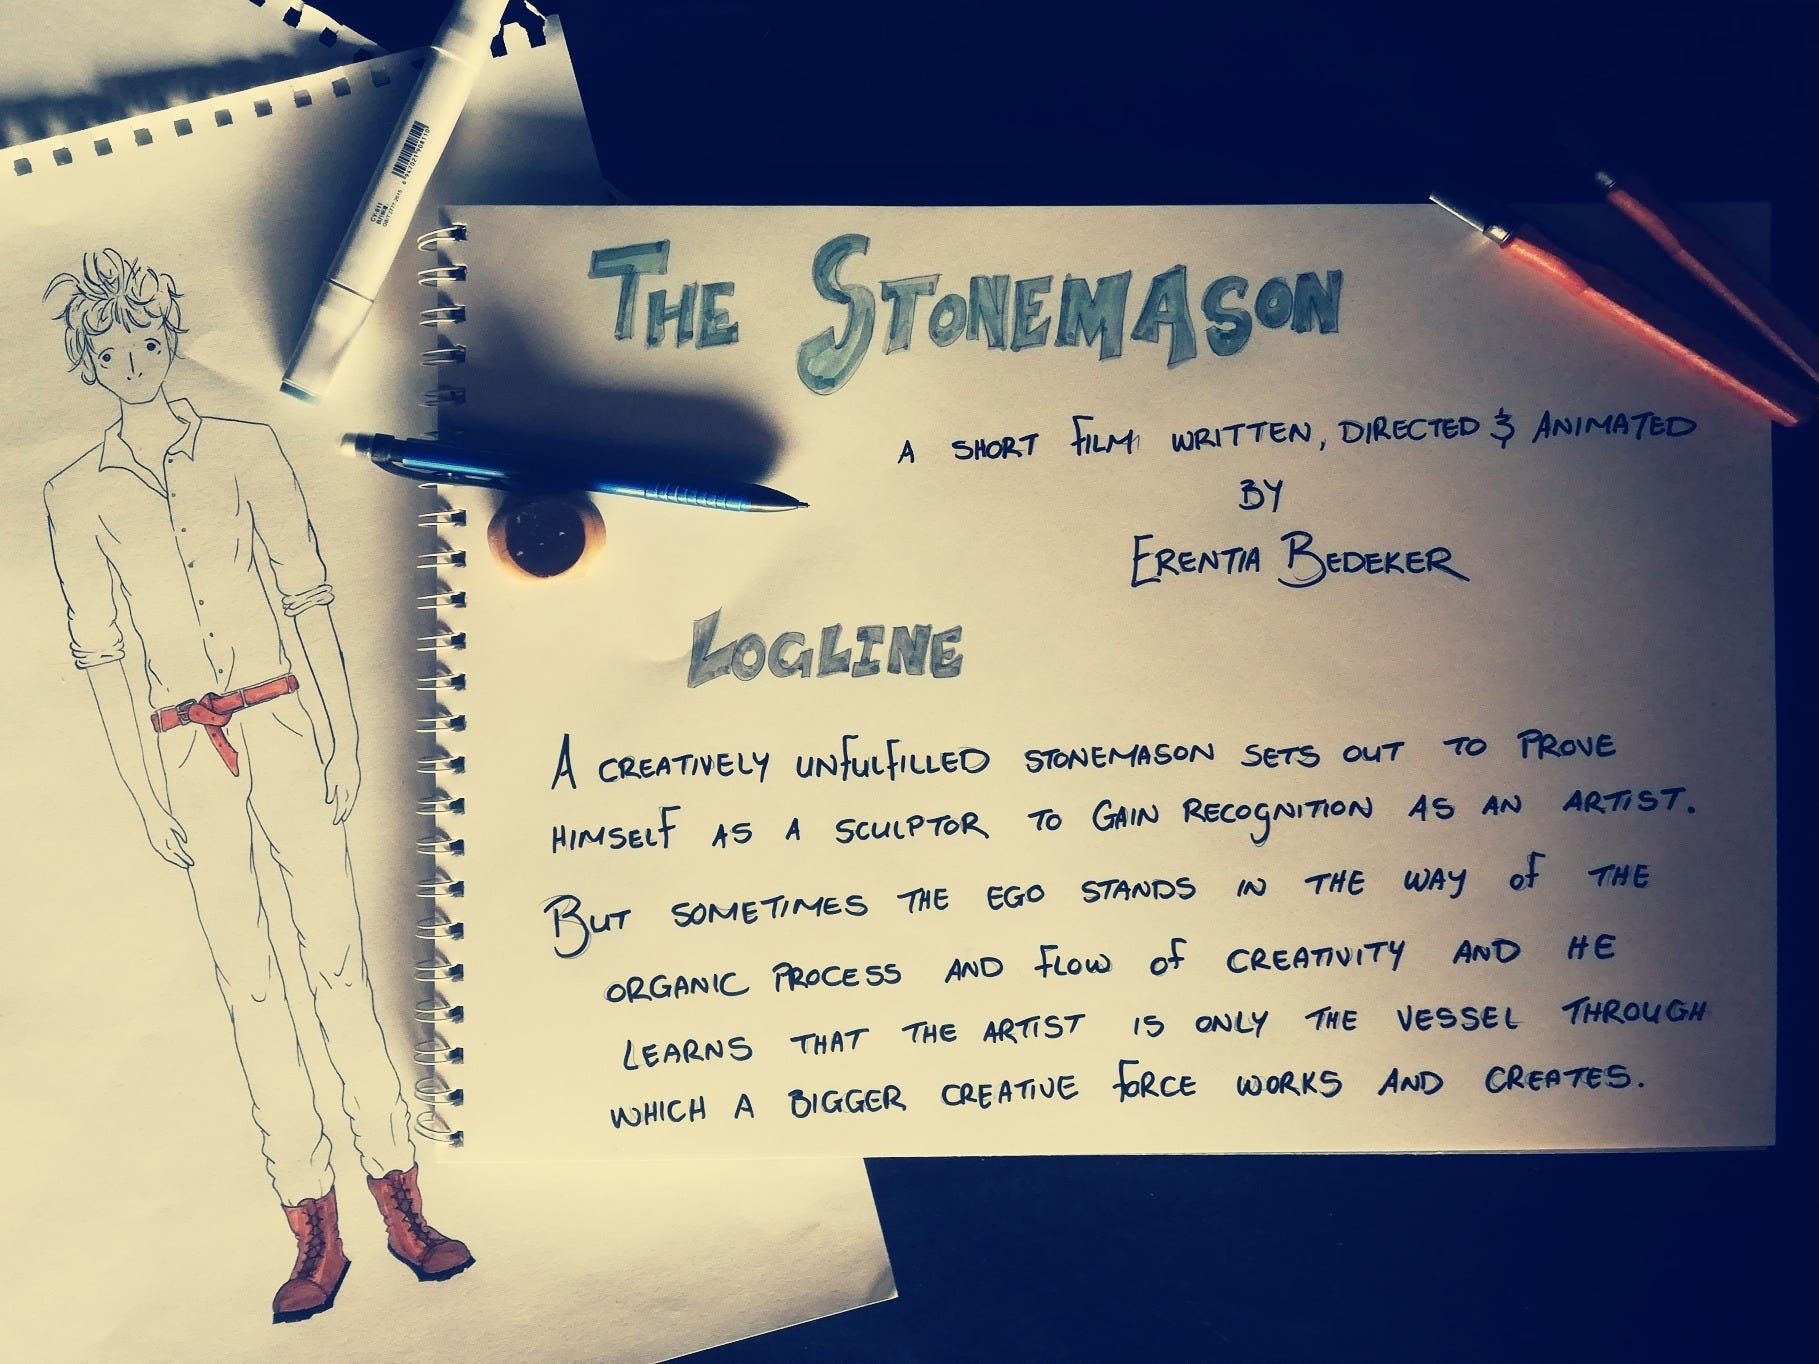 THE STONEMASON
A SHORT FILM WRITTEN, DIRECTED & ANIMATED
BY
ERENTIA BEDEKER
LOGLINE
A CREATIVELY UNFULFILLED STONEMASON SETS OUT TO PROVE
HIMSELF AS A SCULPTOR TO GAIN RECOGNITION AS AN ARTIST.
BUT SOMETIMES THE EGO STANDS IN THE WAY OF THE
ORGANIC PROCESS AND FLOW OF CREATIVITY AND HE
LEARNS THAT THE ARTIST IS ONLY THE VESSEL THROUGH
WHICH A BIGGER CREATIVE FORCE WORKS AND CREATES.